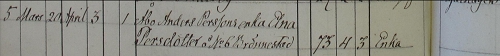 5 Mars 20 April 3 1 Åbo Anders Perssons enka Elna
Persdotter å No 6 Brönnestad 73 4 3 Enka